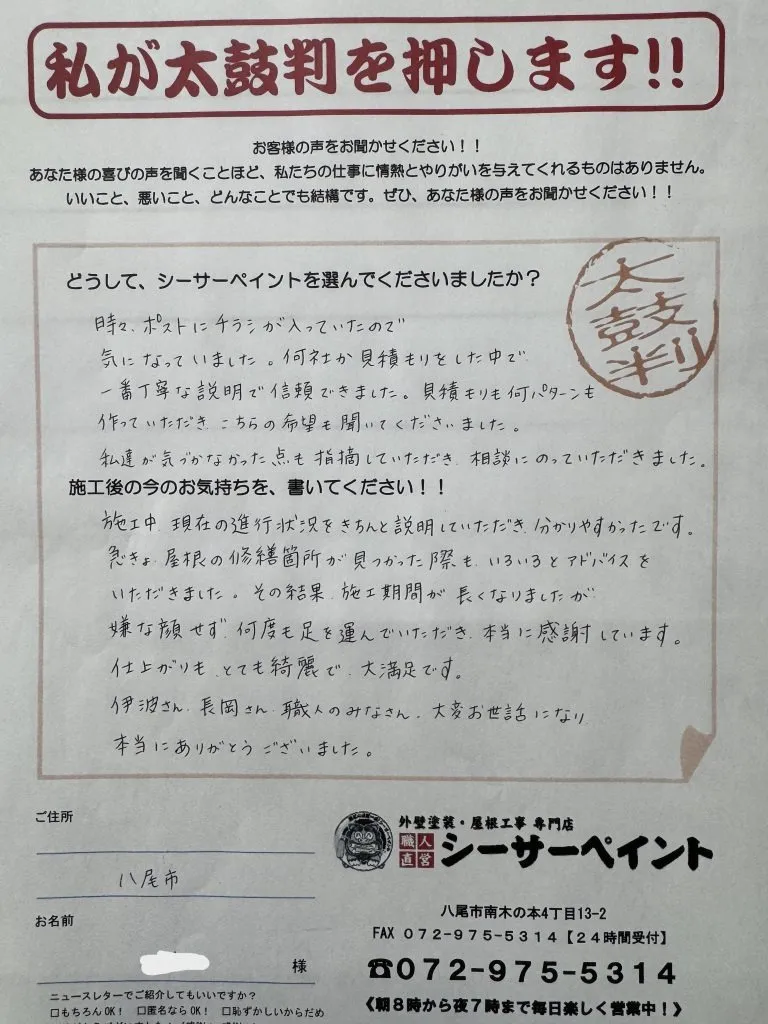 私が太鼓判を押します!!
お客様の声をお聞かせください！！
あなた様の喜びの声を聞くことほど、私たちの仕事に情熱とやりがいを与えてくれるものはありません。
いいこと、悪いこと、どんなことでも結構です。ぜひ、あなた様の声をお聞かせください！！
太鼓判
どうして、シーサーペイントを選んでくださいましたか？
時々、ポストにチラシが入っていたので
気になっていました。何社か見積もりをした中で
一番丁寧な説明で信頼できました。見積もりも何パターンも
作っていただき、こちらの希望も聞いてくださいました。
私達が気づかなかった点も指摘していただき、相談にのっていただきました。
施工後の今のお気持ちを、書いてください！！
施工中、現在の進行状況をきちんと説明していただき、分かりやすかったです。
急きょ、屋根の修繕箇所が見つかった際も、いろいろとアドバイスを
いただきました。その結果、施工期間が長くなりましたが
嫌な顔せず、何度も足を運んでいただき、本当に感謝しています。
仕上がりも、とても綺麗で、大満足です。
伊波さん、長岡さん、職人のみなさん、大変お世話になり
本当にありがとうございました。
ご住所
八尾市
お名前
様
ニュースレターでご紹介してもいいですか？
□もちろんOK！ □匿名ならOK！ □恥ずかしいからだめ
外壁塗装・屋根工事 専門店
職人直営 シーサーペイント
八尾市南木の本4丁目13-2
FAX 072-975-5314【24時間受付】
☎072-975-5314
《朝8時から夜7時まで毎日楽しく営業中！》